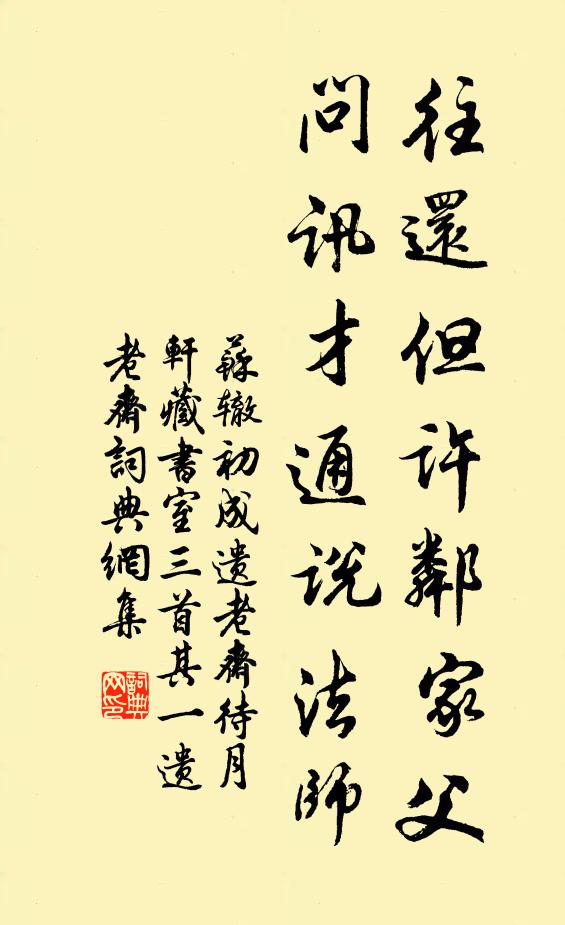 往還但許鄰家父
問訊才通說法師
蘇辙初成遺老齋待月
軒藏書室三首其一遺
老齋詞典網集
詞典网印